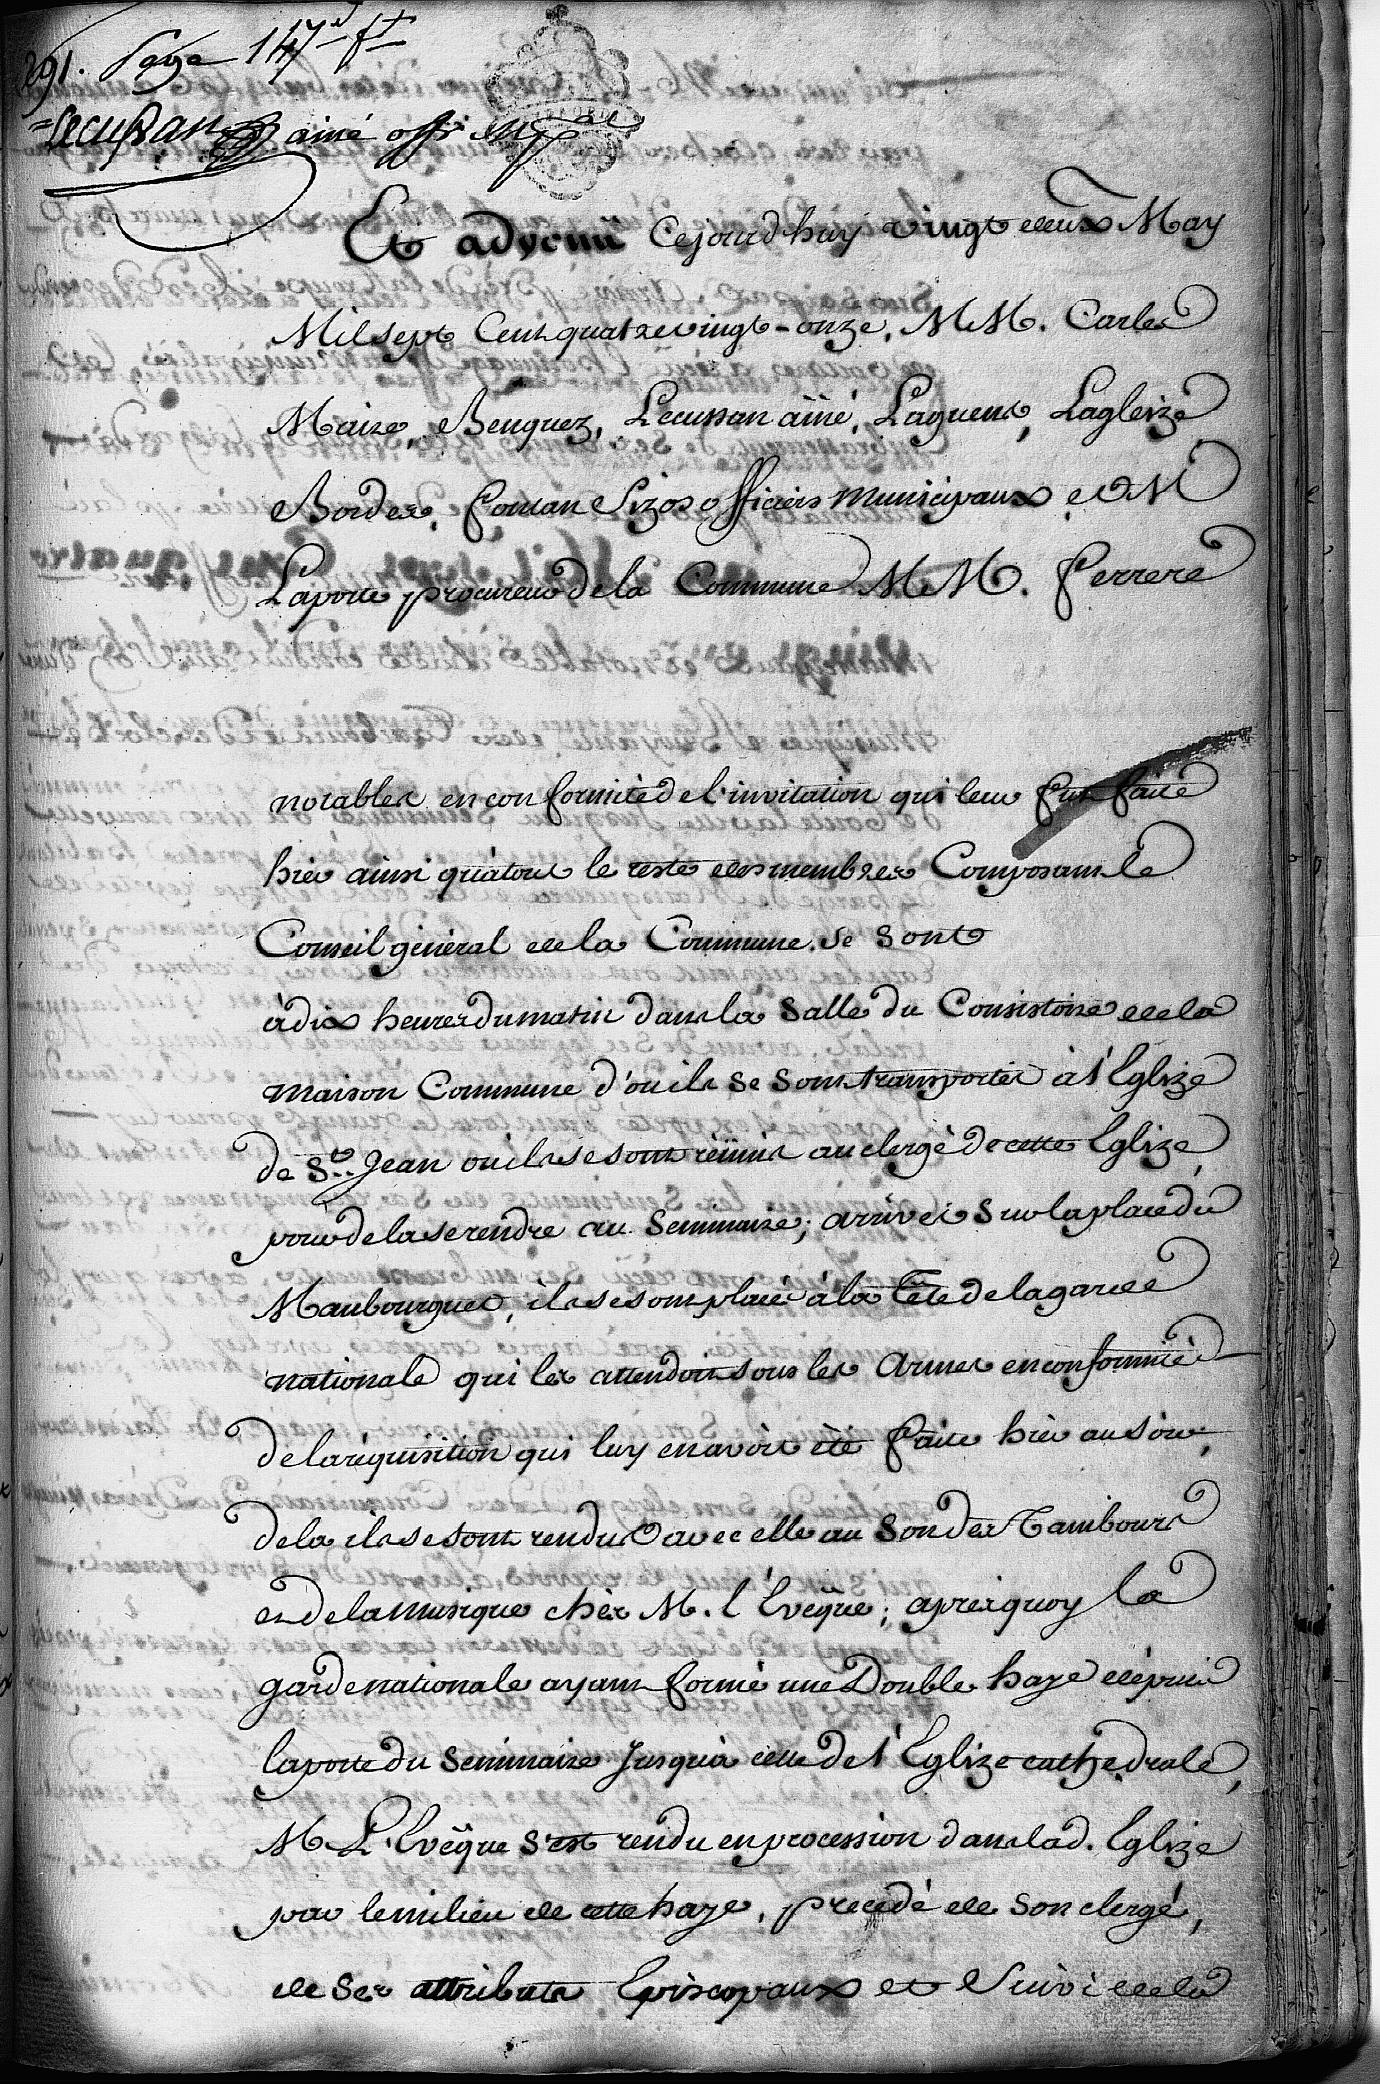 291. Page 147
Lecussan ainé off. mpal
Et advenu Cejourd'huy vingt deux May
Mil sept Cent quatrevingt-onze, MM. Carles
Maire, Benquez, Lecussan ainé, Laguens, Lagleize
Bordes, fontan Sizos officiers municipaux et M
Laporte procureur de la Commune MM. ferrere
notables en conformité de l'invitation qui leur fut faite
hier ainsi qu'atout le reste des membres Composant le
Conseil général de la Commune se sont
à dix heures du matin dans la Salle du Consistoire de la
maison Commune d'ou ils se sont transportés à l'Eglize
de St. Jean ou ils se sont réünis au clergé de cette Eglize,
pour dela se rendre au Seminaire; arrivés sur la place du
Maubourguet, ils se sont placé à la Tête de la garde
nationale qui les attendoit sous les Armes en conformité
de la réquisition qui luy en avoit été faite hier au soir,
dela ils se sont rendus avec elle au Son des Tambours
et de la musique chés M. l'Evêque; après quoy la
garde nationale ayant formé une Double haye dépuis
la porte du Seminaire Jusqu'à celle de l'Eglize cathedrale,
M. L'Evêque s'est rendu en procession dans lad. Eglize
par le milieu de cette haye, precedé de son clergé,
de ses attributs Episcopaux et Suivi de la